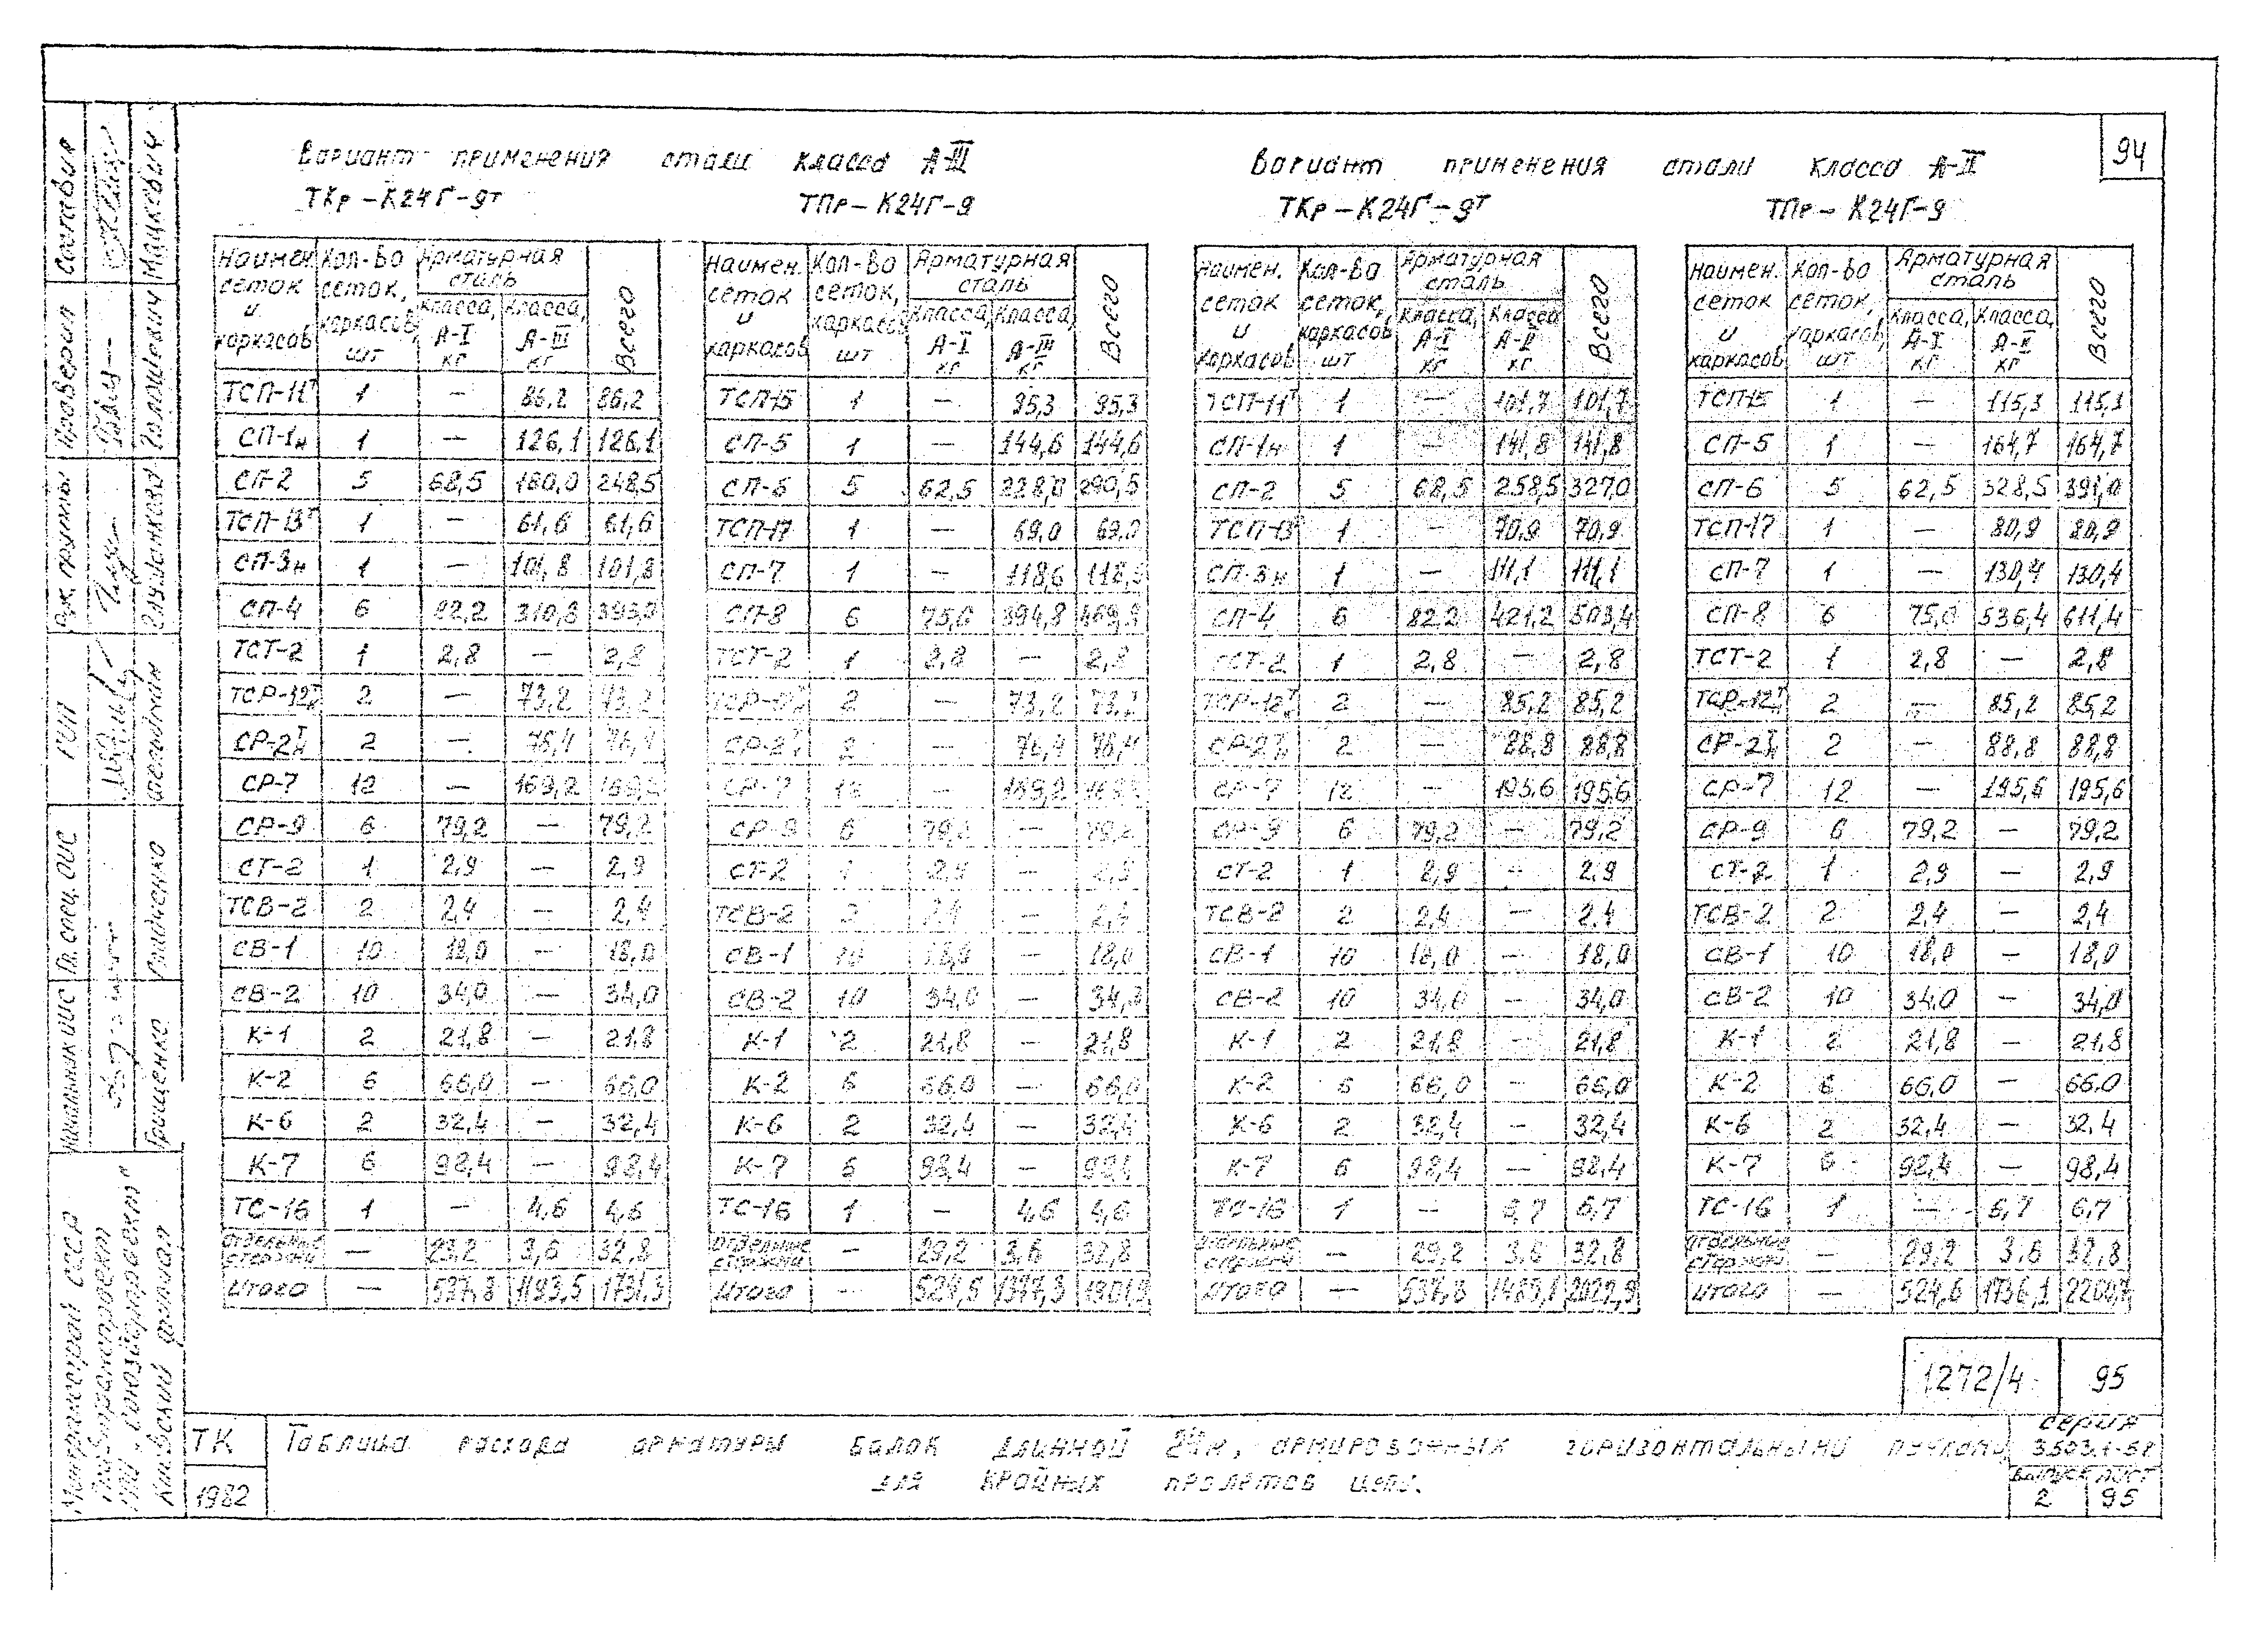 94
Вариант применения стали класса А-III
ТКр-К24Г-9т ТПр-К24Г-9
Наимен. сеток и каркасов | Кол-во сеток, каркасов, шт | Арматурная сталь класса, А-I кг | класса, А-III кг | Всего
ТСП-11т 1 — 86,2 86,2
СП-1н 1 — 126,1 126,1
СП-2 5 68,5 180,0 248,5
ТСП-13т 1 — 61,6 61,6
СП-3н 1 — 101,8 101,8
СП-4 6 82,2 310,8 393,0
ТСТ-2 1 2,8 — 2,8
ТСР-12тн 2 — 73,2 73,2
СР-2тн 2 — 76,4 76,4
СР-7 12 — 169,2 169,2
СР-9 6 79,2 — 79,2
СТ-2 1 2,9 — 2,9
ТСВ-2 2 2,4 — 2,4
СВ-1 10 18,0 — 18,0
СВ-2 10 34,0 — 34,0
К-1 2 21,8 — 21,8
К-2 6 66,0 — 66,0
К-6 2 32,4 — 32,4
К-7 6 98,4 — 98,4
ТС-16 1 — 4,6 4,6
Отдельные стержни — 29,2 3,6 32,8
Итого — 537,8 1193,5 1731,3
Наимен. сеток и каркасов | Кол-во сеток, каркасов шт | Арматурная сталь класса, А-I кг | класса, А-III кг | Всего
ТСП-15 1 — 95,3 95,3
СП-5 1 — 144,6 144,6
СП-6 5 62,5 228,0 290,5
ТСП-17 1 — 69,0 69,0
СП-7 1 — 118,6 118,6
СП-8 6 75,0 394,8 469,8
ТСТ-2 1 2,8 — 2,8
ТСР-12тн 2 — 73,2 73,2
СР-2тн 2 — 76,4 76,4
СР-7 12 — 169,2 169,2
СР-9 6 79,2 — 79,2
СТ-2 1 2,9 — 2,9
ТСВ-2 2 2,4 — 2,4
СВ-1 10 18,0 — 18,0
СВ-2 10 34,0 — 34,0
К-1 2 21,8 — 21,8
К-2 6 66,0 — 66,0
К-6 2 32,4 — 32,4
К-7 6 98,4 — 98,4
ТС-16 1 — 4,6 4,6
Отдельные стержни — 29,2 3,6 32,8
Итого — 524,6 1377,3 1901,9
Вариант применения стали класса А-II
ТКр-К24Г-9т ТПр-К24Г-9
Наимен. сеток и каркасов | Кол-во сеток, каркасов шт | Арматурная сталь класса, А-I кг | класса А-II кг | Всего
ТСП-11т 1 — 101,7 101,7
СП-1н 1 — 141,8 141,8
СП-2 5 68,5 258,5 327,0
ТСП-13т 1 — 70,9 70,9
СП-3н 1 — 111,1 111,1
СП-4 6 82,2 421,2 503,4
ТСТ-2 1 2,8 — 2,8
ТСР-12тн 2 — 85,2 85,2
СР-2тн 2 — 88,8 88,8
СР-7 12 — 195,6 195,6
СР-9 6 79,2 — 79,2
СТ-2 1 2,9 — 2,9
ТСВ-2 2 2,4 — 2,4
СВ-1 10 18,0 — 18,0
СВ-2 10 34,0 — 34,0
К-1 2 21,8 — 21,8
К-2 6 66,0 — 66,0
К-6 2 32,4 — 32,4
К-7 6 98,4 — 98,4
ТС-16 1 — 6,7 6,7
Отдельные стержни — 29,2 3,6 32,8
Итого — 537,8
Наимен. сеток и каркасов | Кол-во сеток, каркасов, шт | Арматурная сталь класса, А-I кг | класса, А-II кг | Всего
ТСП-15 1 — 115,3 115,3
СП-5 1 — 164,7 164,7
СП-6 5 62,5 328,5 391,0
ТСП-17 1 — 80,9 80,9
СП-7 1 — 130,4 130,4
СП-8 6 75,0 536,4 611,4
ТСТ-2 1 2,8 — 2,8
ТСР-12тн 2 — 85,2 85,2
СР-2тн 2 — 88,8 88,8
СР-7 12 — 195,6 195,6
СР-9 6 79,2 — 79,2
СТ-2 1 2,9 — 2,9
ТСВ-2 2 2,4 — 2,4
СВ-1 10 18,0 — 18,0
СВ-2 10 34,0 — 34,0
К-1 2 21,8 — 21,8
К-2 6 66,0 — 66,0
К-6 2 32,4 — 32,4
К-7 6 98,4 — 98,4
ТС-16 1 — 6,7 6,7
Отдельные стержни — 29,2 3,6 32,8
Итого — 524,6 1736,1
1272/4 95
ТК 1982
Таблица расхода арматуры балок длинной 24м, армированных горизонтальными пучками
для крайних пролетов цепи.
серия
3.503.1-
выпуск лист
2 95
Составил Мацкевич
Проверил Галоцевич
Рук. группы
ГИП
Гл. спец. ОИС Гладченко
Начальник ОИС Грищенко
Минтрансстрой СССР
Главтранспроект
ГПИ „Союздорпроект“
Киевский филиал